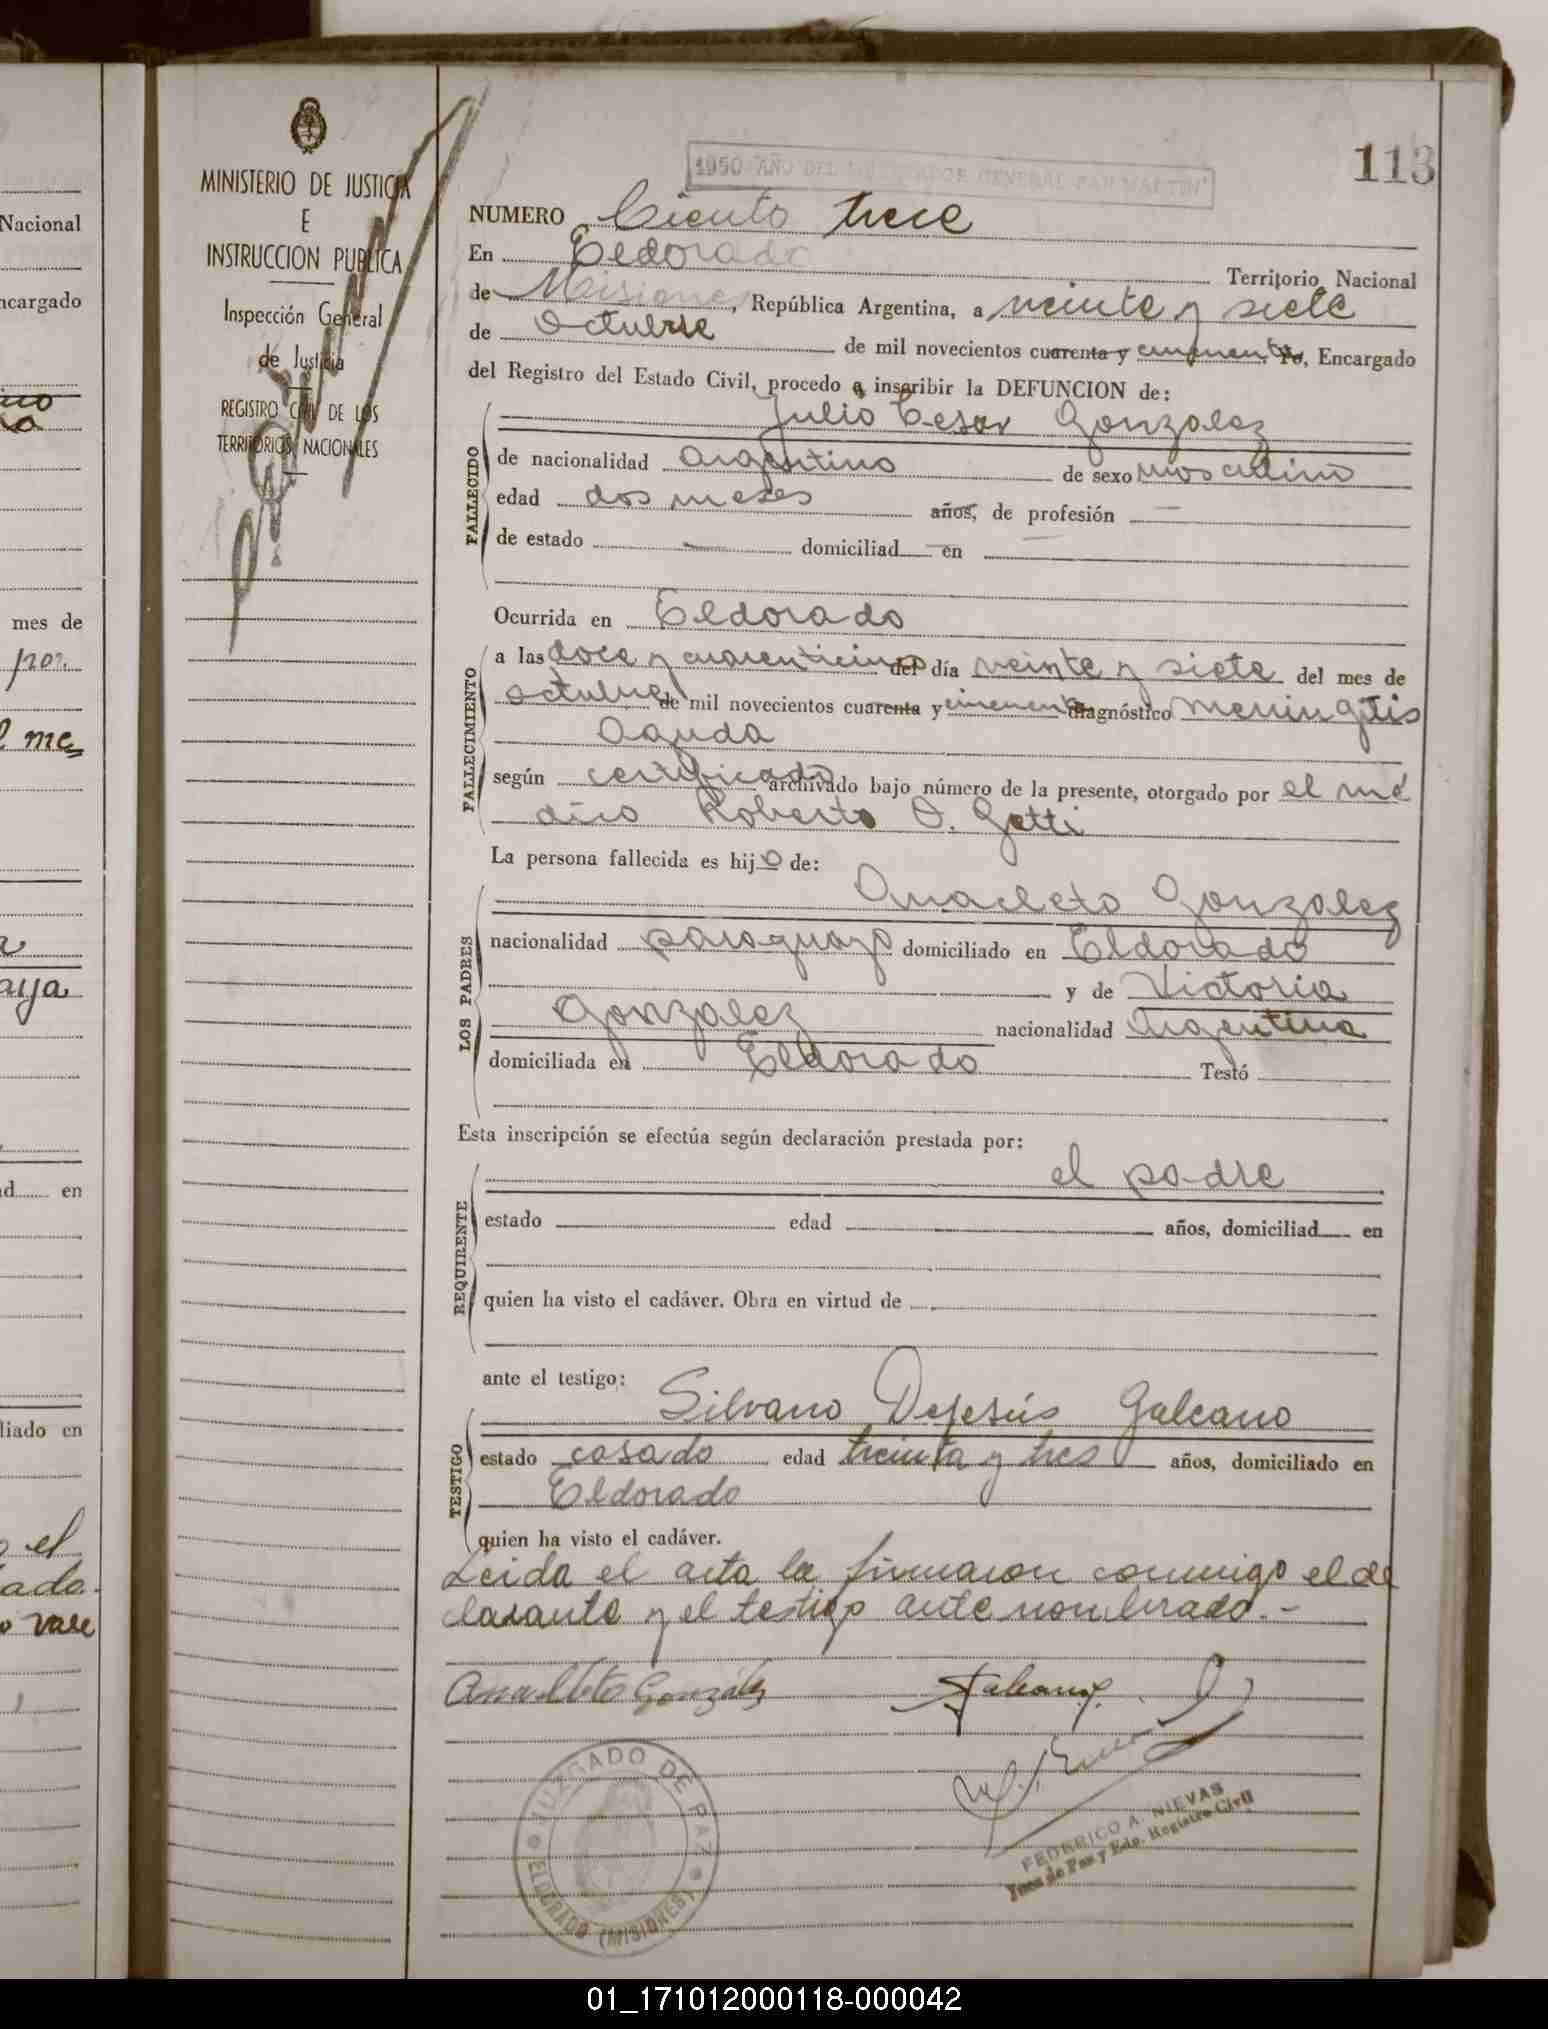 113
1950 AÑO DEL LIBERTADOR GENERAL SAN MARTIN
MINISTERIO DE JUSTICIA
E
INSTRUCCION PUBLICA
Inspección General
de Justicia
REGISTRO CIVIL DE LOS
TERRITORIOS NACIONALES
NUMERO Ciento trece
En Eldorado Territorio Nacional
de Misiones, República Argentina, a veinte y siete
de octubre de mil novecientos cuarenta y cincuenta Yo, Encargado
del Registro del Estado Civil, procedo a inscribir la DEFUNCION de:
FALLECIDO
Julio Cesar Gonzalez
de nacionalidad argentino de sexo masculino
edad dos meses años, de profesión —
de estado — domiciliad en
FALLECIMIENTO
Ocurrida en Eldorado
a las doce y cuarenticinco del día veinte y siete del mes de
octubre de mil novecientos cuarenta y cincuenta diagnóstico Meningitis
Aguda
según certificado archivado bajo número de la presente, otorgado por el mé
dico Roberto O. Gatti
La persona fallecida es hijo de:
LOS PADRES
Anacleto Gonzalez
nacionalidad paraguayo domiciliado en Eldorado
y de Victoria
Gonzalez nacionalidad Argentina
domiciliada en Eldorado Testó
Esta inscripción se efectúa según declaración prestada por:
REQUIRENTE
el padre
estado edad años, domiciliad en
quien ha visto el cadáver. Obra en virtud de
ante el testigo:
TESTIGO
Silvano Dejesús Galeano
estado casado edad treinta y tres años, domiciliado en
Eldorado
quien ha visto el cadáver.
Leida el acta la firmaron conmigo el de
clarante y el testigo ante nombrado.-
Anacleto González
Galeano
JUZGADO DE PAZ
ELDORADO (MISIONES)
FEDERICO A. NIEVAS
Juez de Paz y Edo. Registro Civil
Nacional
ncargado
mes de
por
l mes
aya
d en
liado en
el
ada.
vale
01_171012000118-000042